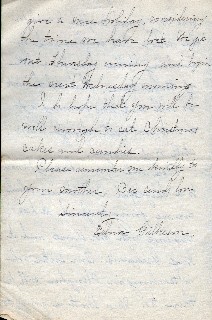 give a nice holiday, considering
the time we have lost. We get
out Thursday evening and begin
the next Wednesday morning.
I do hope that you will be
well enough to eat Christmas
cakes and candies.
Please remember me kindly to
your mother. Best and love
Sincerely,